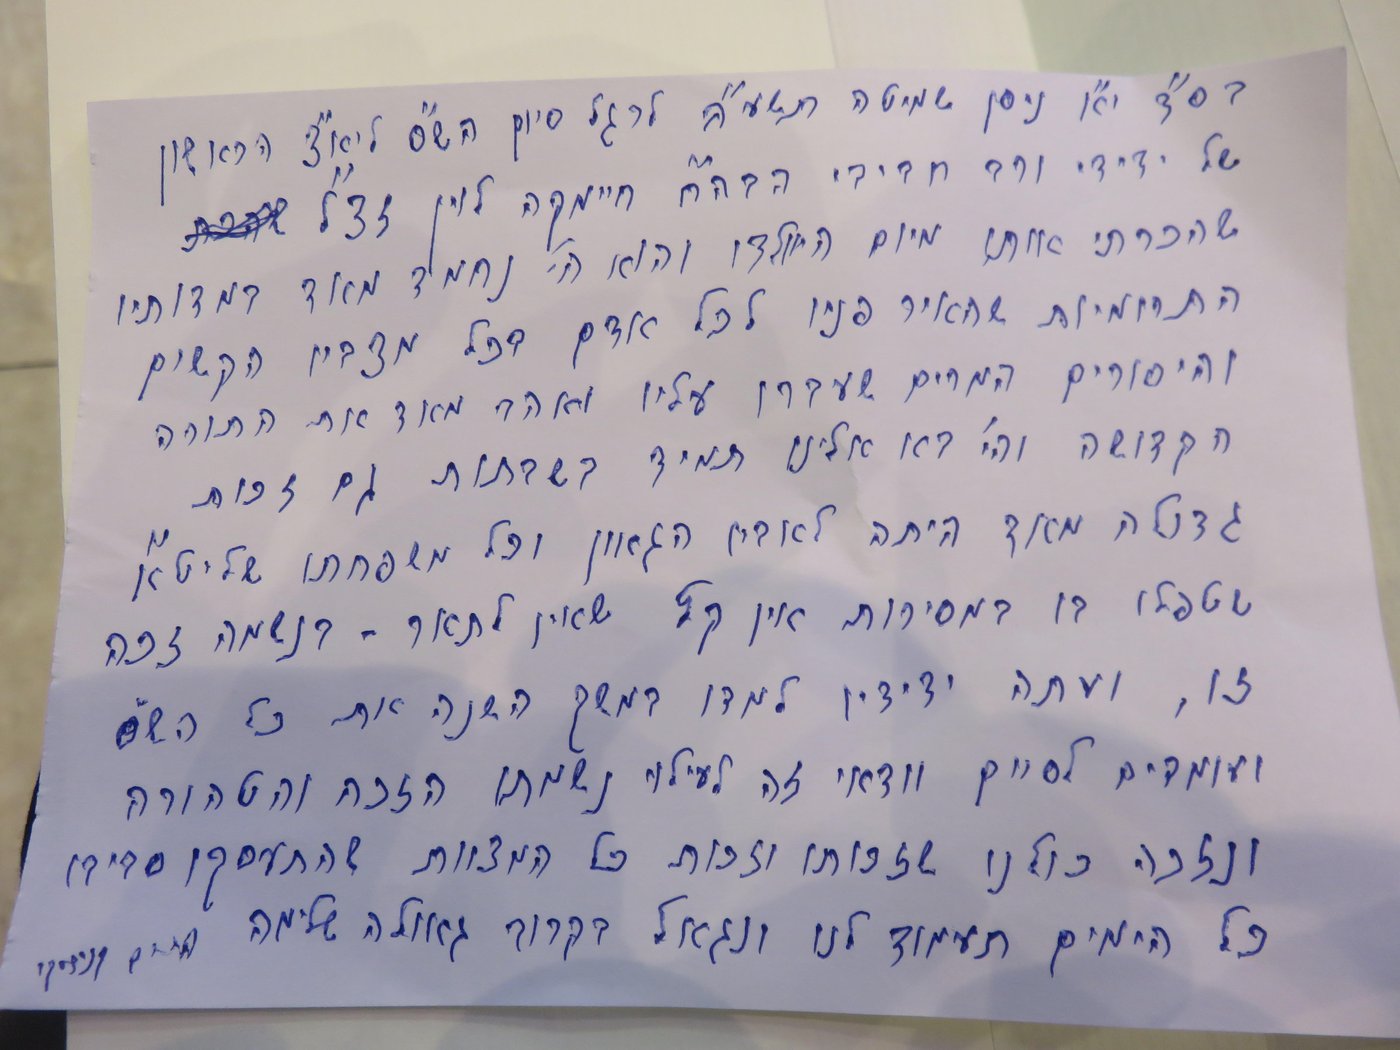 בס"ד י"א ניסן שמיטה תשע"ה לרגל סיום הש"ס ליא"צ הראשון
של ידידי ורב חביבי הבה"ח חיימקה לוין זצ"ל
שהכרתי אותו מיום היולדו והוא הי' נחמד מאוד במדותיו
התרומיות שהאיר פניו לכל אדם בכל מצביו הקשים
והיסורים המרים שעברו עליו ואהב מאוד את התורה
הקדושה והי' בא אלינו תמיד בשבתות גם זכות
גדולה מאוד היתה לאביו הגאון וכל משפחתו שליט"א
שטפלו בו במסירות אין קץ שאין לתאר - בנשמה זכה
זו, ועתה ידידיו למדו במשך השנה את כל הש"ס
ועומדים לסיים וודאי זה לעילוי נשמתו הזכה והטהורה
ונזכה כולנו שזכותו וזכות כל המצוות שהתעסקו סביבו
כל הימים תעמוד לנו ונגאל בקרוב גאולה שלימה
קניבסקי